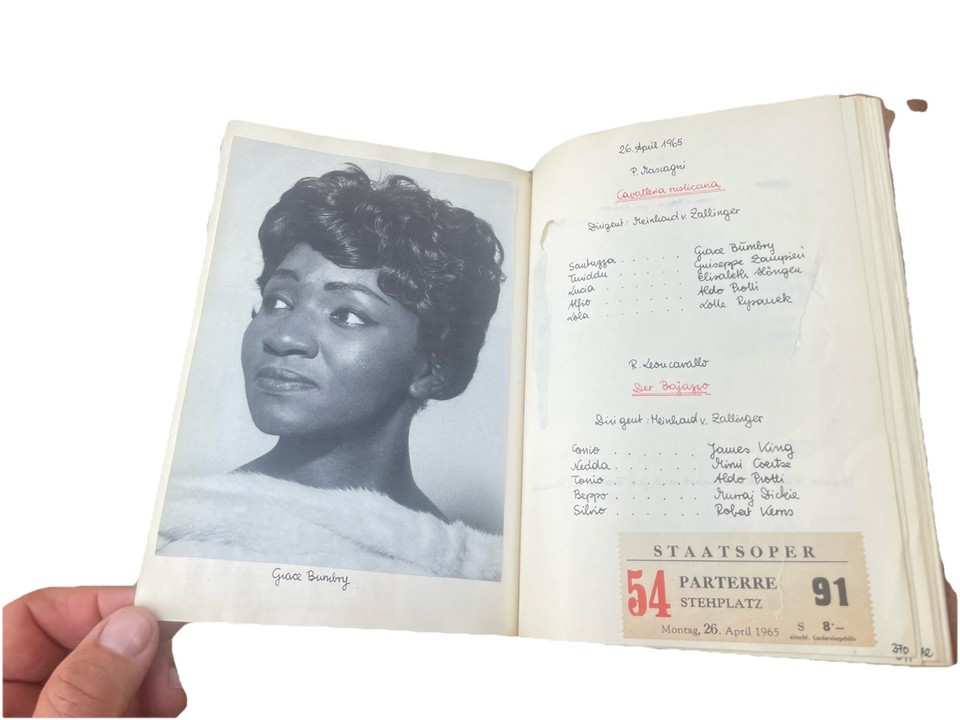 Grace Bumbry
26. April 1965
P. Mascagni
Cavalleria rusticana
Dirigent: Meinhard v. Zallinger
Santuzza . . . . . . Grace Bumbry
Turiddu . . . . . . Guiseppe Zampieri
Lucia . . . . . . Elisabeth Höngen
Alfio . . . . . . Aldo Protti
Lola . . . . . . Lotte Rysanek
R. Leoncavallo
Der Bajazzo
Dirigent: Meinhard v. Zallinger
Canio . . . . . . James King
Nedda . . . . . . Mimi Coertse
Tonio . . . . . . Aldo Protti
Beppo . . . . . . Murraj Dickie
Silvio . . . . . . Robert Kerns
STAATSOPER
54 PARTERRE 91
STEHPLATZ
Montag, 26. April 1965 S 8·–
einschl. Garderobegebühr
370